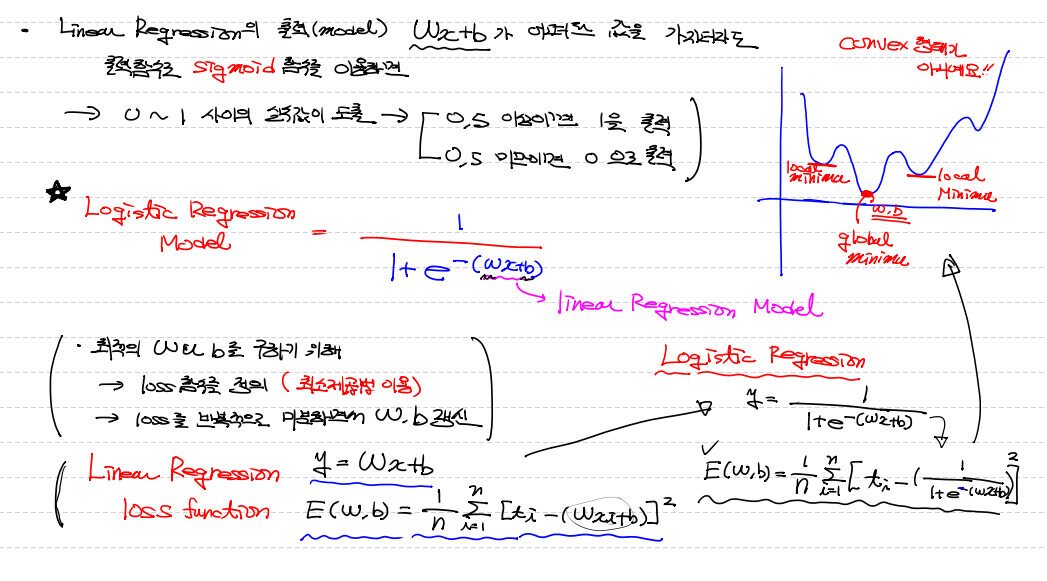 · Linear Regression의 출력(model) Wx+b가 어떠한 값을 가지더라도
출력함수로 sigmoid 함수를 이용하면
→ 0 ~ 1 사이의 실수값이 도출 → 0.5 이상이면 1을 출력
0.5 미만이면 0으로 출력
convex 형태가
아니예요!!
local
minima
local
Minima
W,b
global
minima
★ Logistic Regression
Model = 1 / (1 + e^-(Wx+b))
→ linear Regression Model
· 최적의 W와 b를 구하기 위해
→ loss 함수를 정의 (최소제곱법 이용)
→ loss를 반복적으로 미분하면서 W,b 갱신
Linear Regression y = Wx+b
loss function E(W,b) = 1/n Σ_{i=1}^{n} [ti - (Wxi+b)]^2
Logistic Regression
y = 1 / (1 + e^-(Wx+b))
✓ E(W,b) = 1/n Σ_{i=1}^{n} [ti - (1 / (1 + e^-(Wx+b)))]^2